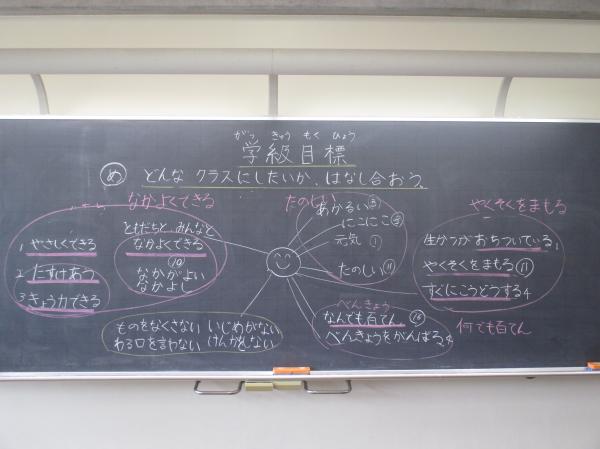 がっ きゅう もく ひょう
学級目標
め どんな クラスにしたいか、はなし合おう。
なかよくできる
ともだちと、みんなと
なかよくできる
なかがよい
なかよし
1 やさしくできる
2 たすけあう
3 きょう力できる
たのしい
あかるい
にこにこ
元気 1
たのしい 11
やくそくをまもる
生かつがおちついている 1
やくそくをまもる 11
すぐにこうどうする 4
ものをなくさない いじめがない
わる口を言わない けんかをしない
べんきょう
なんでも百てん
べんきょうをがんばる 4
何でも百てん